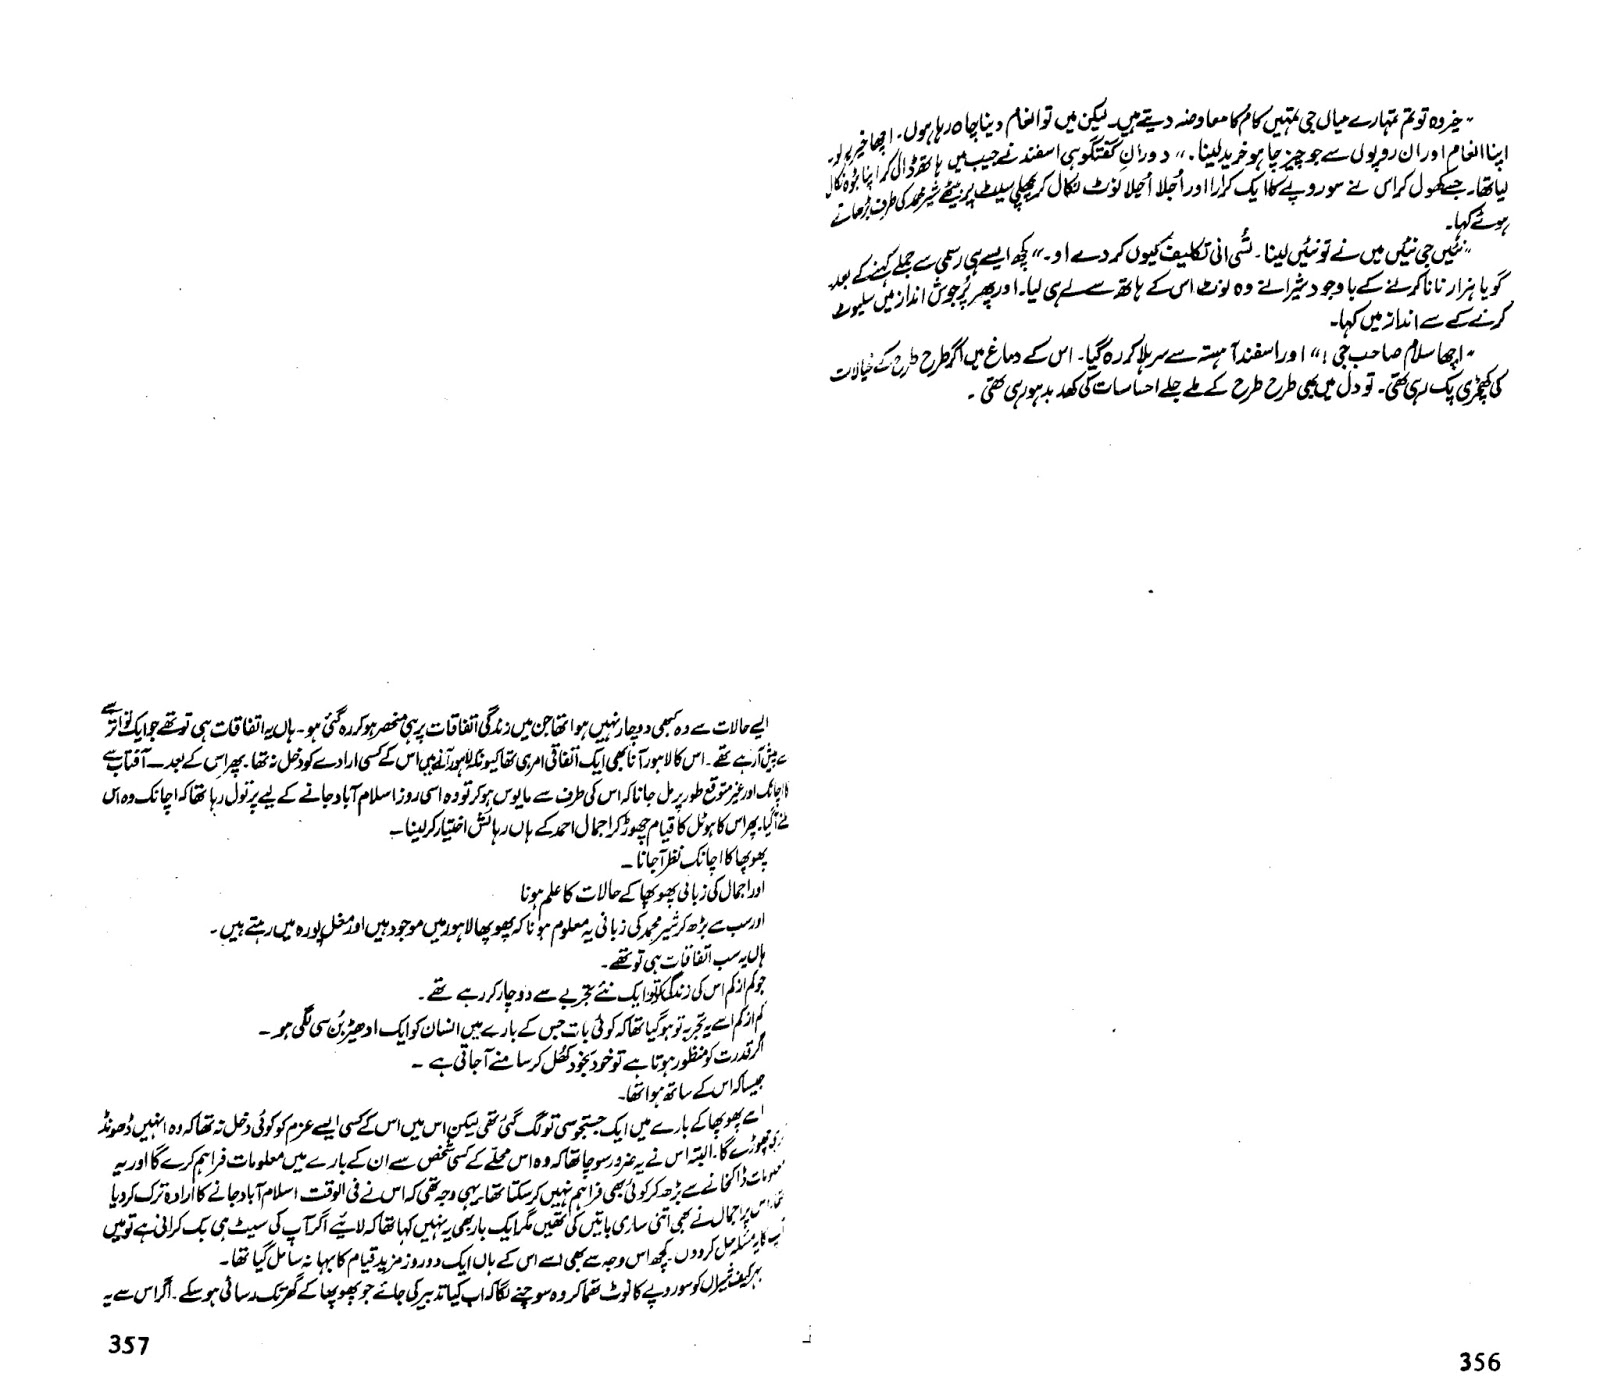 "خیر وہ تو تم تمہارے میاں جی تمہیں کام کا معاوضہ دیتے ہیں۔ لیکن میں تو انعام دینا چاہ رہا ہوں۔ اچھا خیر یہ لو۔
اپنا انعام اور ان روپوں سے جو چیز چاہو خرید لینا۔" دورانِ گفتگو ہی اسفند نے جیب میں ہاتھ ڈال کر اپنا بٹوہ نکال
لیا تھا۔ جسے کھول کر اس نے سو روپے کا ایک کرارا اور اُجلا اُجلا نوٹ نکال کر پچھلی سیٹ پر بیٹھے شیر محمد کی طرف بڑھاتے
ہوئے کہا۔
"نئیں جی نئیں میں نے تو نئیں لینا۔ تُسی انی تکلیف کیوں کر دے او۔" کچھ ایسے ہی رسمی سے جملے کہنے کے بعد
گویا ہزار نا نا کرنے کے باوجود شیرا نے وہ نوٹ اس کے ہاتھ سے لے ہی لیا۔ اور پھر پُرجوش انداز میں سلیوٹ
کرنے کے سے انداز میں کہا۔
"اچھا سلام صاحب جی!" اور اسفند آہستہ سے سر ہلا کر رہ گیا۔ اس کے دماغ میں اگر طرح طرح کے خیالات
کی کھچڑی پک رہی تھی۔ تو دل میں بھی طرح طرح کے ملے جلے احساسات کی کھد بد ہو رہی تھی۔
356
ایسے حالات سے وہ کبھی دوچار نہیں ہوا تھا جن میں زندگی اتفاقات پر ہی منحصر ہو کر رہ گئی ہو۔ ہاں یہ اتفاقات ہی تو تھے جو ایک تواتر سے
پیش آ رہے تھے۔ اس کا لاہور آنا بھی ایک اتفاقی امر ہی تھا کیونکہ لاہور آنے میں اس کے کسی ارادے کو دخل نہ تھا۔ پھر اس کے بعد ـــ آفتاب سے
اچانک اور غیر متوقع طور پر مل جانا کہ اس کی طرف سے مایوس ہو کر تو وہ اسی روز اسلام آباد جانے کے لیے پر تول رہا تھا کہ اچانک وہ اس
آ گیا۔ پھر اس کا ہوٹل کا قیام چھوڑ کر اجمال احمد کے ہاں رہائش اختیار کر لینا ـــ
پھوپھا کا اچانک نظر آ جانا ـــ
اور اجمال کی زبانی پھوپھا کے حالات کا علم ہونا
اور سب سے بڑھ کر شیر محمد کی زبانی یہ معلوم ہونا کہ پھوپھا لاہور میں موجود ہیں اور مغل پورہ میں رہتے ہیں۔
ہاں یہ سب اتفاقات ہی تو تھے۔
جو کم از کم اس کی زندگی کو ایک نئے تجربے سے دوچار کر رہے تھے۔
کم از کم اسے یہ تجربہ تو ہو گیا تھا کہ کوئی بات جس کے بارے میں انسان کو ایک ادھیڑ بُن سی لگی ہو ـــ
اگر قدرت کو منظور ہوتا ہے تو خود بخود کُھل کر سامنے آ جاتی ہے ـــ
جیسا کہ اس کے ساتھ ہوا تھا۔
اسے پھوپھا کے بارے میں ایک جستجو سی تو لگ گئی تھی لیکن اس میں اس کے کسی ایسے عزم کو کوئی دخل نہ تھا کہ وہ انہیں ڈھونڈ
چھوڑے گا۔ البتہ اس نے یہ ضرور سوچا تھا کہ وہ اس محلے کے کسی شخص سے ان کے بارے میں معلومات فراہم کرے گا اور یہ
معلومات ڈاکخانے سے بڑھ کر کوئی بھی فراہم نہیں کر سکتا تھا۔ یہی وجہ تھی کہ اس نے فی الوقت اسلام آباد جانے کا ارادہ ترک کر دیا
تھا۔ اس پر اجمال نے بھی اتنی ساری باتیں کی تھیں مگر ایک بار بھی یہ نہیں کہا تھا کہ لائیے اگر آپ کی سیٹ ہی بک کرانی ہے تو میں
آپ کا یہ مسئلہ حل کر دوں۔ کچھ اس وجہ سے بھی اسے اس کے ہاں ایک دو روز مزید قیام کا بہانہ سا مل گیا تھا۔
بہرکیف شیراں کو سو روپے کا نوٹ تھما کر وہ سوچنے لگا کہ اب کیا تدبیر کی جائے جو پھوپھا کے گھر تک رسائی ہو سکے۔ اگر اس سے یہ
357